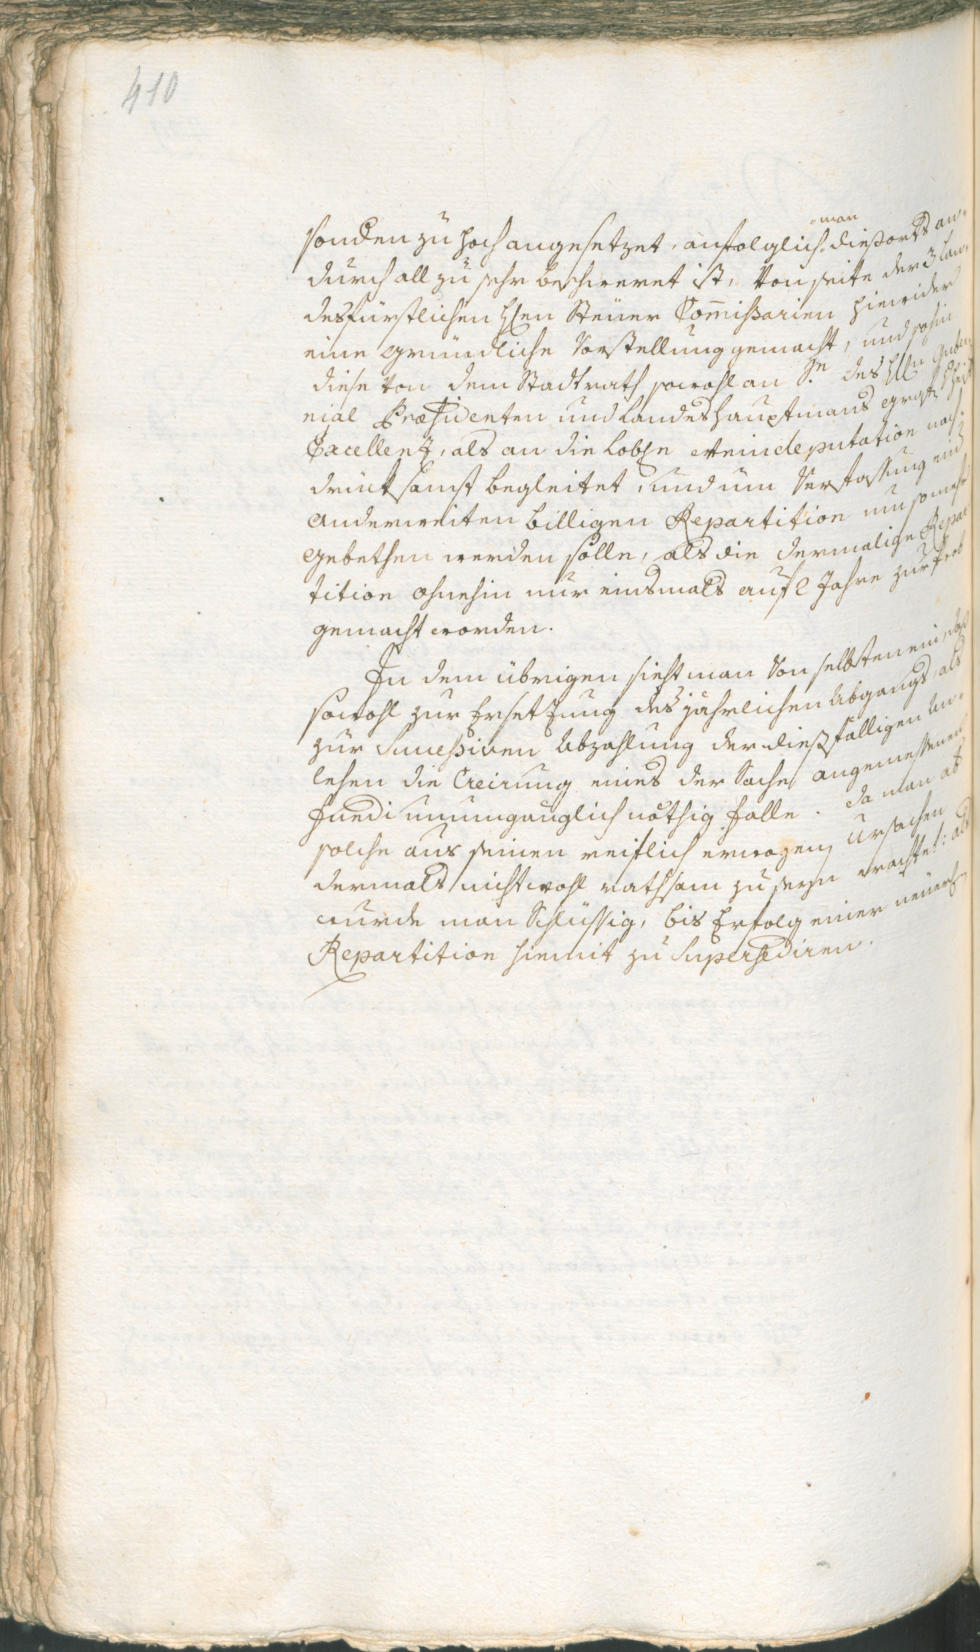 410
man
sonden zu hoch angesetzet, anfolglich dießorts an-
durch all zu sehr beschweret ist, von seite der 3 lan-
desfürstlichen Hhen Steüer Com̅ißarien hinwider
eine gründliche Vorstellung gemacht, und sohin
diese von dem Stadtrath sowohl an Sr. des Hhn Guber
nial Præsidenten und Landeshauptmans
Excellenz, als an die Lobhe deputation nach-
druksamst begleitet, und um Verfassung einer
anderweiten billigen Repartition um somehr
gebethen werden solle, als die dermalige Repar
tition ohnehin nur einsmals auf 2 Jahre zur Prob
gemacht worden.
In dem übrigen sieht man von selbsten ein, daß
sowohl zur Ersetzung des jährlichen Abgangs, als
zur Succeßiven Abzahlung der dießfälligen An-
lehen die Creirung eines der Sache angemessenen
Fundi unumgänglich nöthig falle. da man ab
solche aus seinen reiflich erwogenen Ursachen
dermals nicht wohl rathsam zu seyn erachtet: als
wurde man Schlüssig, bis Erfolg einer neüer
Repartition hiemit zu Supersediren.